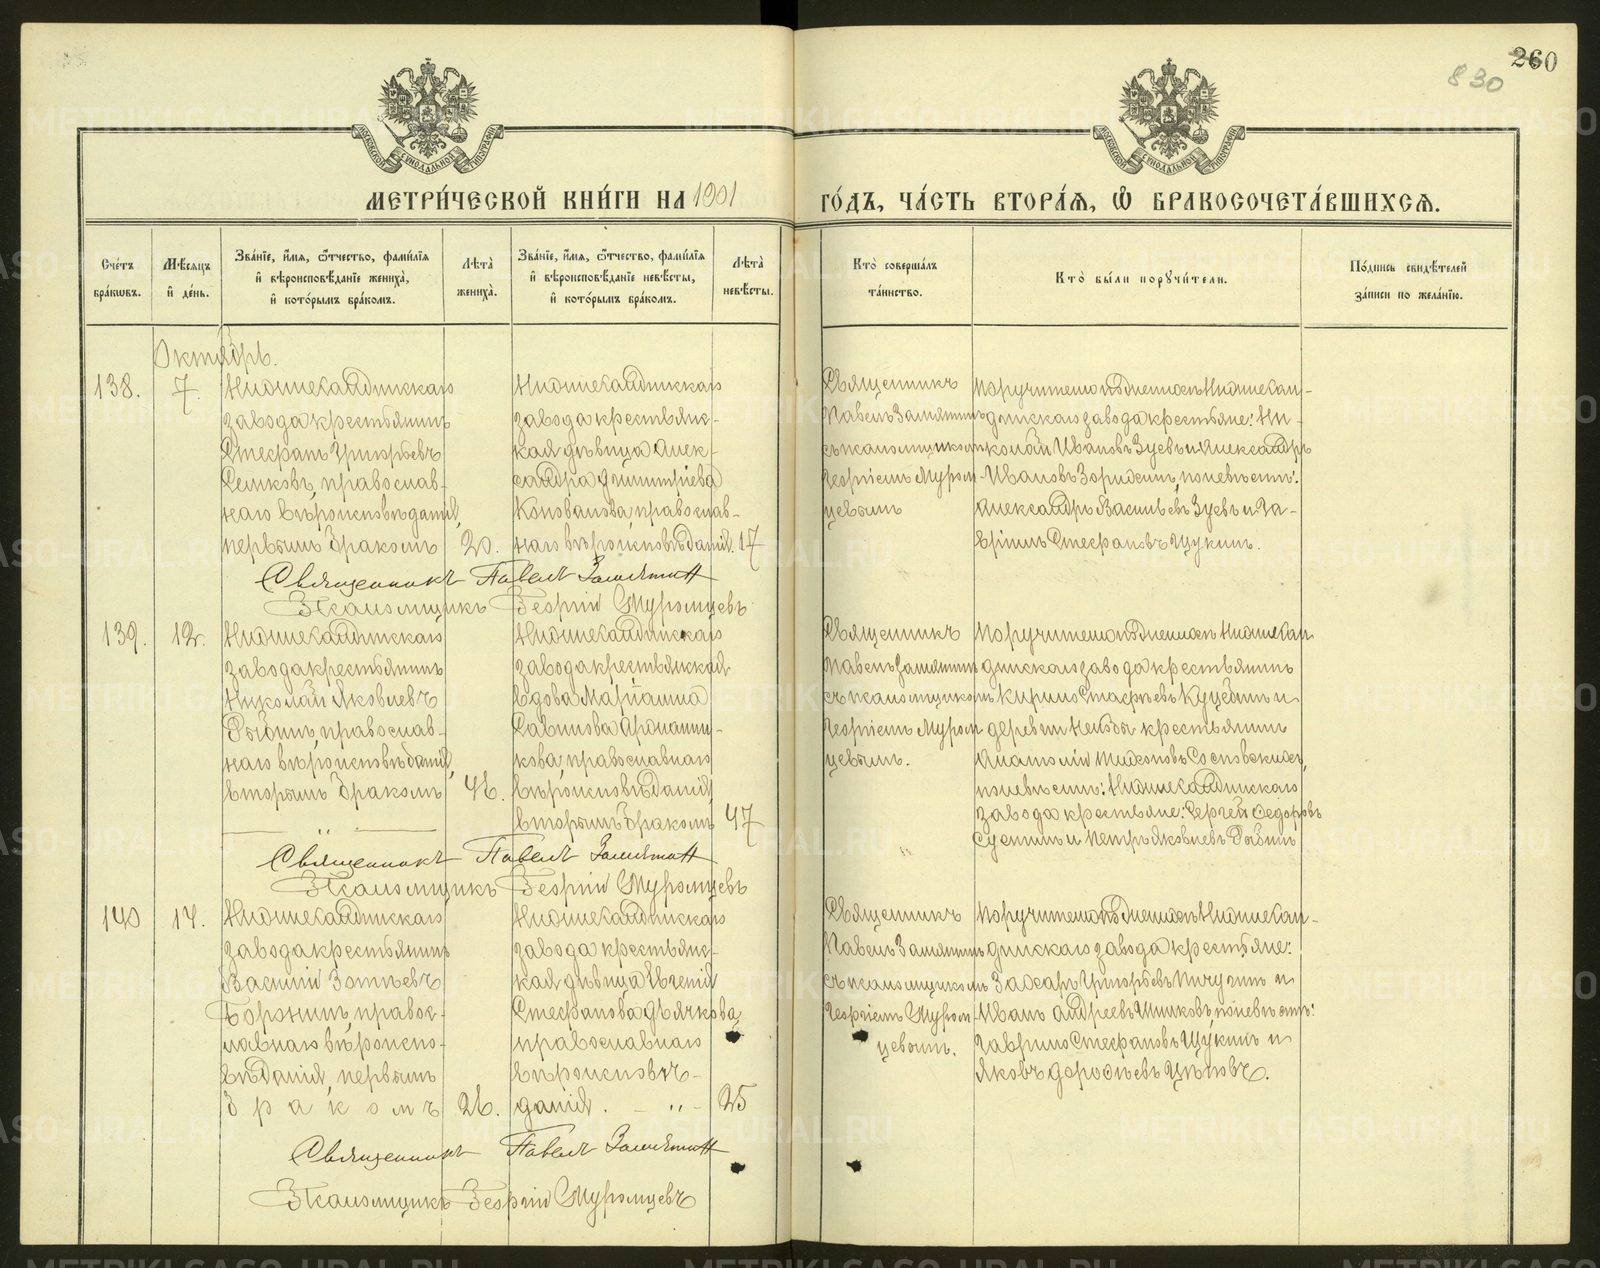 260
830
МОСКОВСКОЙ СѴНОДАЛЬНОЙ ТИПОГРАФІИ
МОСКОВСКОЙ СѴНОДАЛЬНОЙ ТИПОГРАФІИ
МЕТРИ́ЧЕСКОЙ КНИ́ГИ НА 1901 ГО́ДЪ, ЧА́СТЬ ВТОРА́Ѧ, Ѡ БРАКОСОЧЕТА́ВШИХСѦ.
Сче́тъ бра́кѡвъ.
Мѣ́сяцъ и҆ де́нь.
Зва́нїе, и҆́мя, ѻ҆́тчество, фами́лїя и҆ вѣроисповѣ́данїе жениха̀, и҆ кото́рымъ бра́комъ.
Лѣта̀ жениха̀.
Зва́нїе, и҆́мя, ѻ҆́тчество, фами́лїя и҆ вѣроисповѣ́данїе невѣ́сты, и҆ кото́рымъ бра́комъ.
Лѣта̀ невѣ́сты.
Кто̀ соверша́лъ та́инство.
Кто̀ бы́ли порꙋчи́тели.
По́дпись свидѣ́телей за́писи по жела́нїю.
Октябрь.
138.
7.
Нижнесалдинскаго
завода крестьянинъ
Стефанъ Григорьевъ
православ-
наго вѣроисповѣданія,
первымъ бракомъ
20.
Нижнесалдинскаго
завода крестьянс-
кая дѣвица Алек-
сандра Димитріева
Коновалова, православ-
наго вѣроисповѣданія.
17
Священникъ
Павелъ Замятинъ
съ псаломщикомъ
Георгіемъ Муром-
цевымъ
Поручители по женихѣ Нижнесал-
динскаго завода крестьяне: Ни-
колай Ивановъ Зуевъ и Александръ
Ивановъ по невѣстѣ:
Александръ Васильевъ Зуевъ и Га-
вріилъ Стефановъ Щукинъ.
Священникъ Павелъ Замятин
Псаломщикъ Георгій Муромцевъ
139.
12.
Нижнесалдинскаго
завода крестьянинъ
Николай Яковлевъ
православ-
наго вѣроисповѣданія,
вторымъ бракомъ
46.
Нижнесалдинскаго
завода крестьянская
вдова Маріанна
Саввинова
православнаго
вѣроисповѣданія,
вторымъ бракомъ
47
Священникъ
Павелъ Замятинъ
съ псаломщикомъ
Георгіемъ Муром
цевымъ.
Поручители по женихѣ Нижнесал
динскаго завода крестьянинъ
и
деревни крестьянинъ
Анатолій Тихоновъ
по невѣстѣ: Нижнесалдинскаго
завода крестьяне: Сергей Федоровъ
и Петръ Яковлевъ
Священникъ Павелъ Замятин
Псаломщикъ Георгій Муромцевъ
140
14.
Нижнесалдинскаго
завода крестьянинъ
Василій Зотѣевъ
правос-
лавнаго вѣроиспо-
вѣданія, первымъ
бракомъ
26.
Нижнесалдинскаго
завода крестьянс-
кая дѣвица Евгенія
Стефанова Дьячкова,
православнаго
вѣроисповѣ-
данія. - " -
25
Священникъ
Павелъ Замятинъ
съ псаломщикомъ
Георгіемъ Муром-
цевымъ.
Поручители по женихѣ Нижнесал-
динскаго завода крестьяне:
Захаръ Григорьевъ Пичугинъ и
Иванъ Андреевъ Шишковъ, по невѣстѣ:
Гавріилъ Стефановъ Щукинъ и
Яковъ Дорофѣевъ
Священникъ Павелъ Замятин
Псаломщикъ Георгій Муромцевъ
METRIKI.GASO-URAL.RU